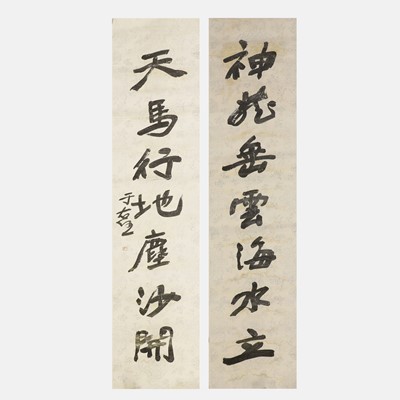 神龍垂雲海水立
天馬行地塵沙開
于右任